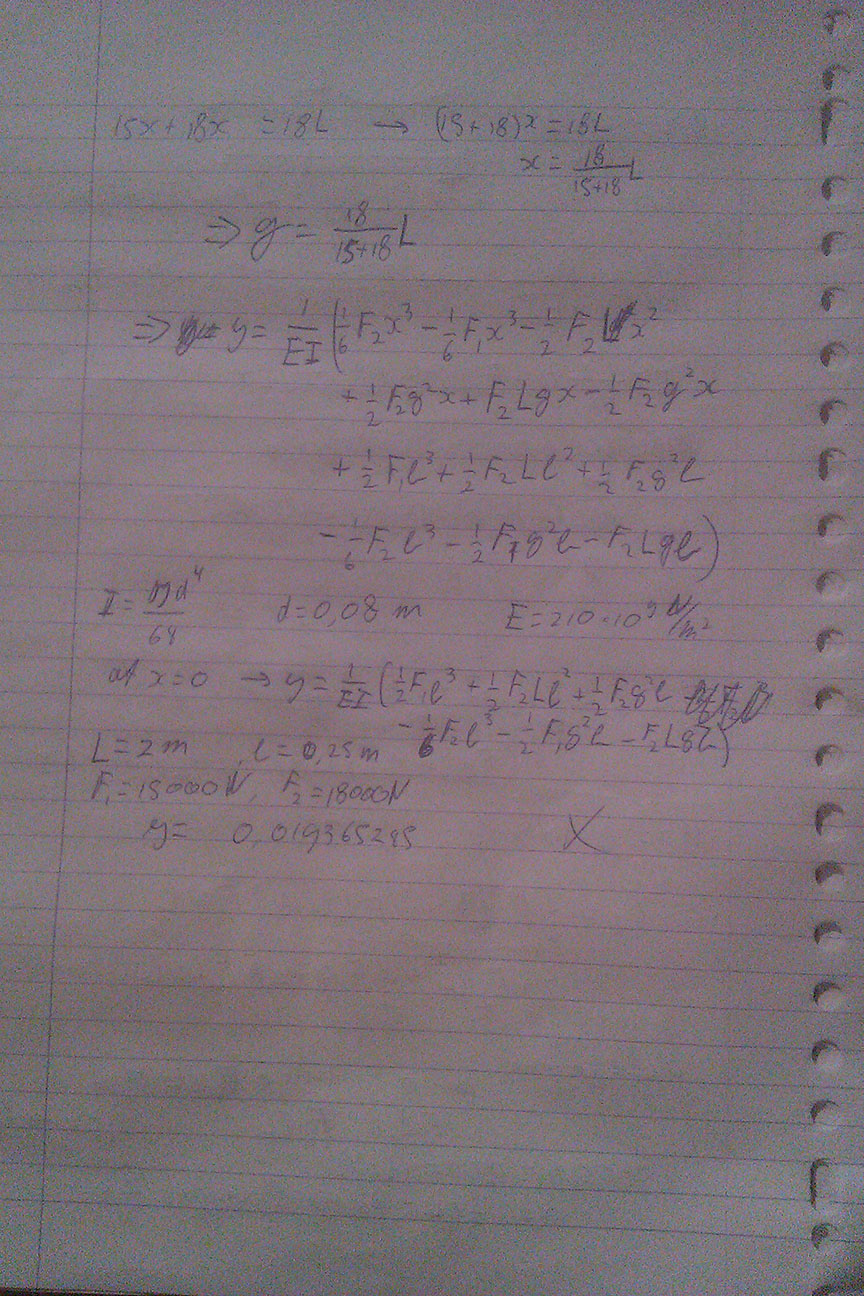 15x + 18x = 18L → (15+18)x = 18L
x = 18/(15+18) L
⇒ g = 18/(15+18) L
⇒ y = 1/EI (1/6 F₂x³ - 1/6 F₁x³ - 1/2 F₂ L x²
+ 1/2 F₂g²x + F₂Lgx - 1/2 F₂g²x
+ 1/2 F₁l³ + 1/2 F₂Ll² + 1/2 F₂g²l
- 1/6 F₂l³ - 1/2 F₁g²l - F₂Lgl)
I = πd⁴/64 d = 0,08 m E = 210·10⁹ N/m²
at x=0 → y = 1/EI (1/2 F₁l³ + 1/2 F₂Ll² + 1/2 F₂g²l
- 1/6 F₂l³ - 1/2 F₁g²l - F₂Lgl)
L = 2 m, l = 0,25 m
F₁ = 15000N, F₂ = 18000N
y = 0,019365295 X